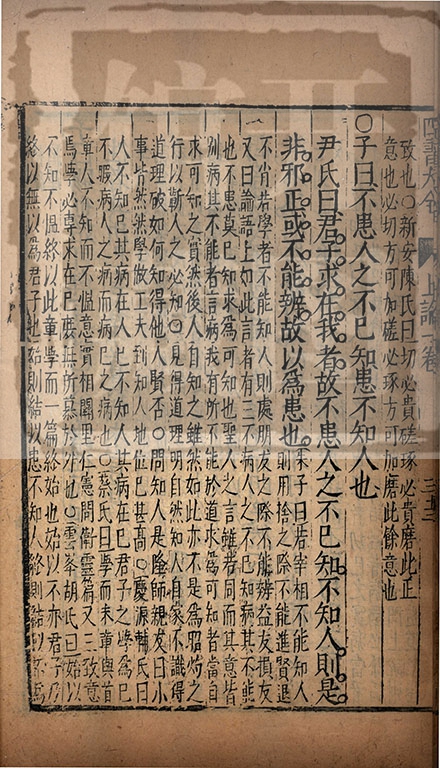 四書大全 上論一卷 三十三
致也○新安陳氏曰切必貴磋琢必貴磨此正
意也必切方可加磋必琢方可加磨此餘意也
○子曰不患人之不已知患不知人也
尹氏曰君子求在我者故不患人之不已知不知人則是
非邪正或不能辨故以爲患也
朱子曰若宰相不能知人
則用捨之際不能進賢退
不肖若學者不能知人則處朋友之際不能辨益友損友
又曰論語上如此言者有三不病人之不已知病其不能
也不患莫已知求爲可知也聖人之言雖若同而其意皆
別病其不能者言病我有所不能於道求爲可知者當自
求可知之實然後人自知之雖然如此亦不是爲昭灼之
行以蘄人之必知○見得道理明自然知人自家不識得
道理破如何知得他人賢否○問知人是隆師親友曰小
事皆然然學做工夫到知人地位已甚高○慶源輔氏曰
人不知已其病在人已不知人其病在已君子之學爲已
不暇病人之病而病已之病也○蔡氏曰學而末章與首
章人不知而不慍意實相關里仁憲問衞靈篇又三致意
焉學必專求在已無所慕於外也○雲峯胡氏曰始以
不知不慍終以此章學而一篇終始也始以不亦君子乃
終以無以爲君子也始則結以患不知人終則結以